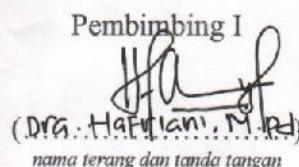 Pembimbing I
(Dra. Hafriani, M.Pd)
nama terang dan tanda tangan